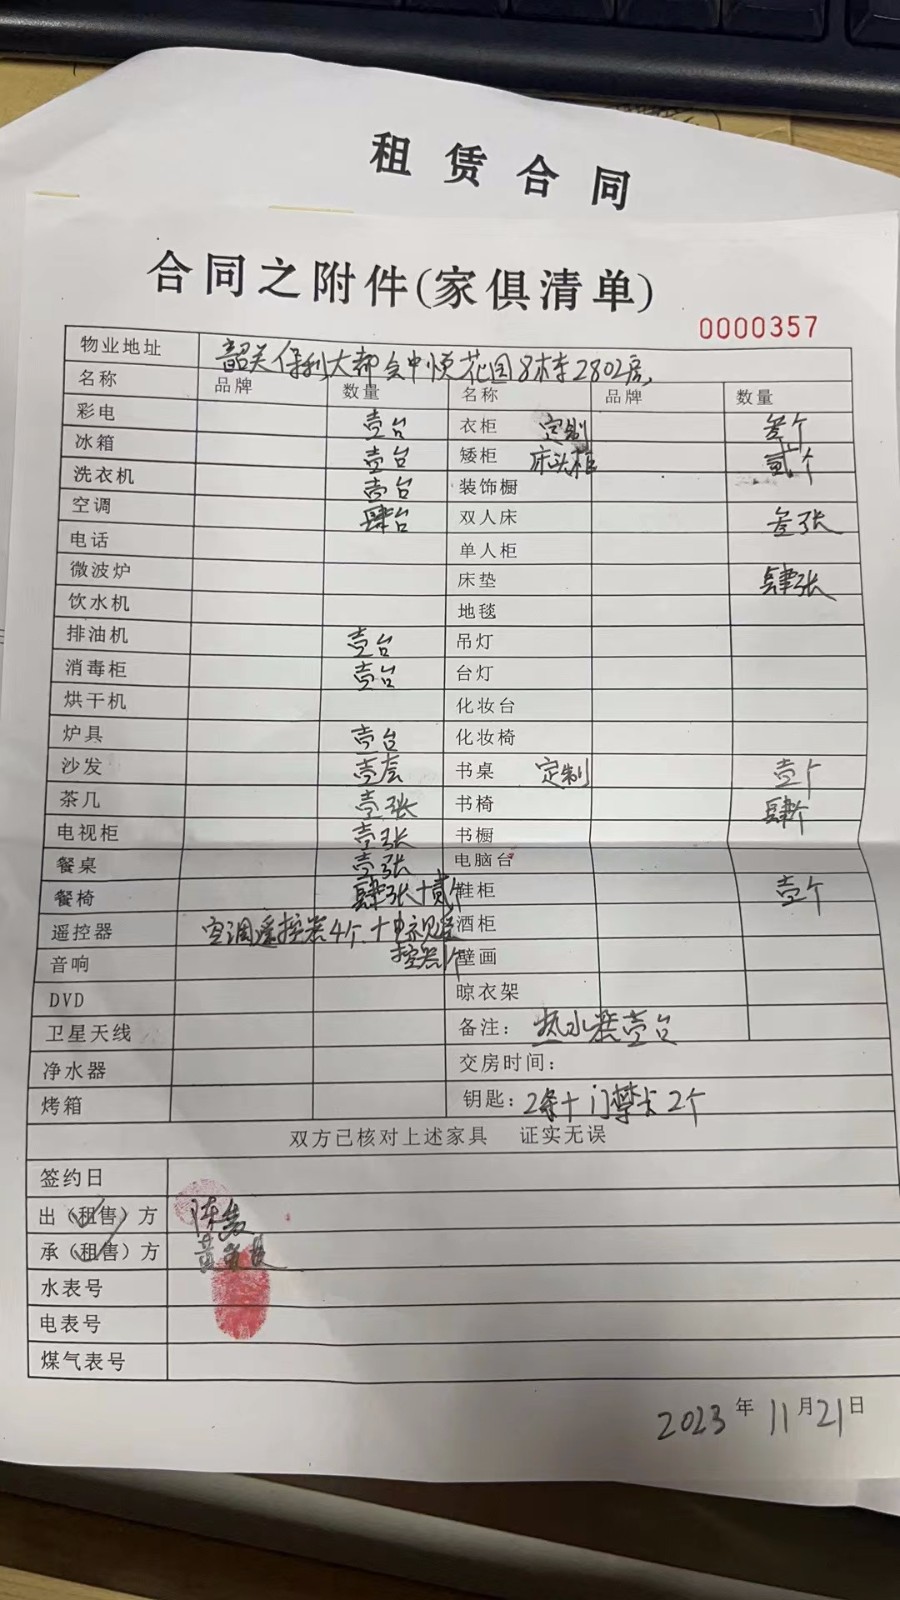 租赁合同
合同之附件(家俱清单)
0000357
物业地址 韶关保利大都会中悦花园8栋2802房
名称 品牌 数量 名称 品牌 数量
彩电 壹台 衣柜 定制 叁个
冰箱 壹台 矮柜 床头柜 贰个
洗衣机 壹台 装饰橱
空调 肆台 双人床 叁张
电话 单人柜
微波炉 床垫 肆张
饮水机 地毯
排油机 壹台 吊灯
消毒柜 壹台 台灯
烘干机 化妆台
炉具 壹台 化妆椅
沙发 壹套 书桌 定制 壹个
茶几 壹张 书椅 肆个
电视柜 壹张 书橱
餐桌 壹张 电脑台
餐椅 肆张+贰个 鞋柜 壹个
遥控器 空调遥控器4个、+电视遥控器1个 酒柜
音响 壁画
DVD 晾衣架
卫星天线 备注: 热水器壹台
净水器 交房时间:
烤箱 钥匙: 2条+门禁卡2个
双方已核对上述家具 证实无误
签约日
出(租售)方 陈
承(租售)方 黄
水表号
电表号
煤气表号
2023年11月21日